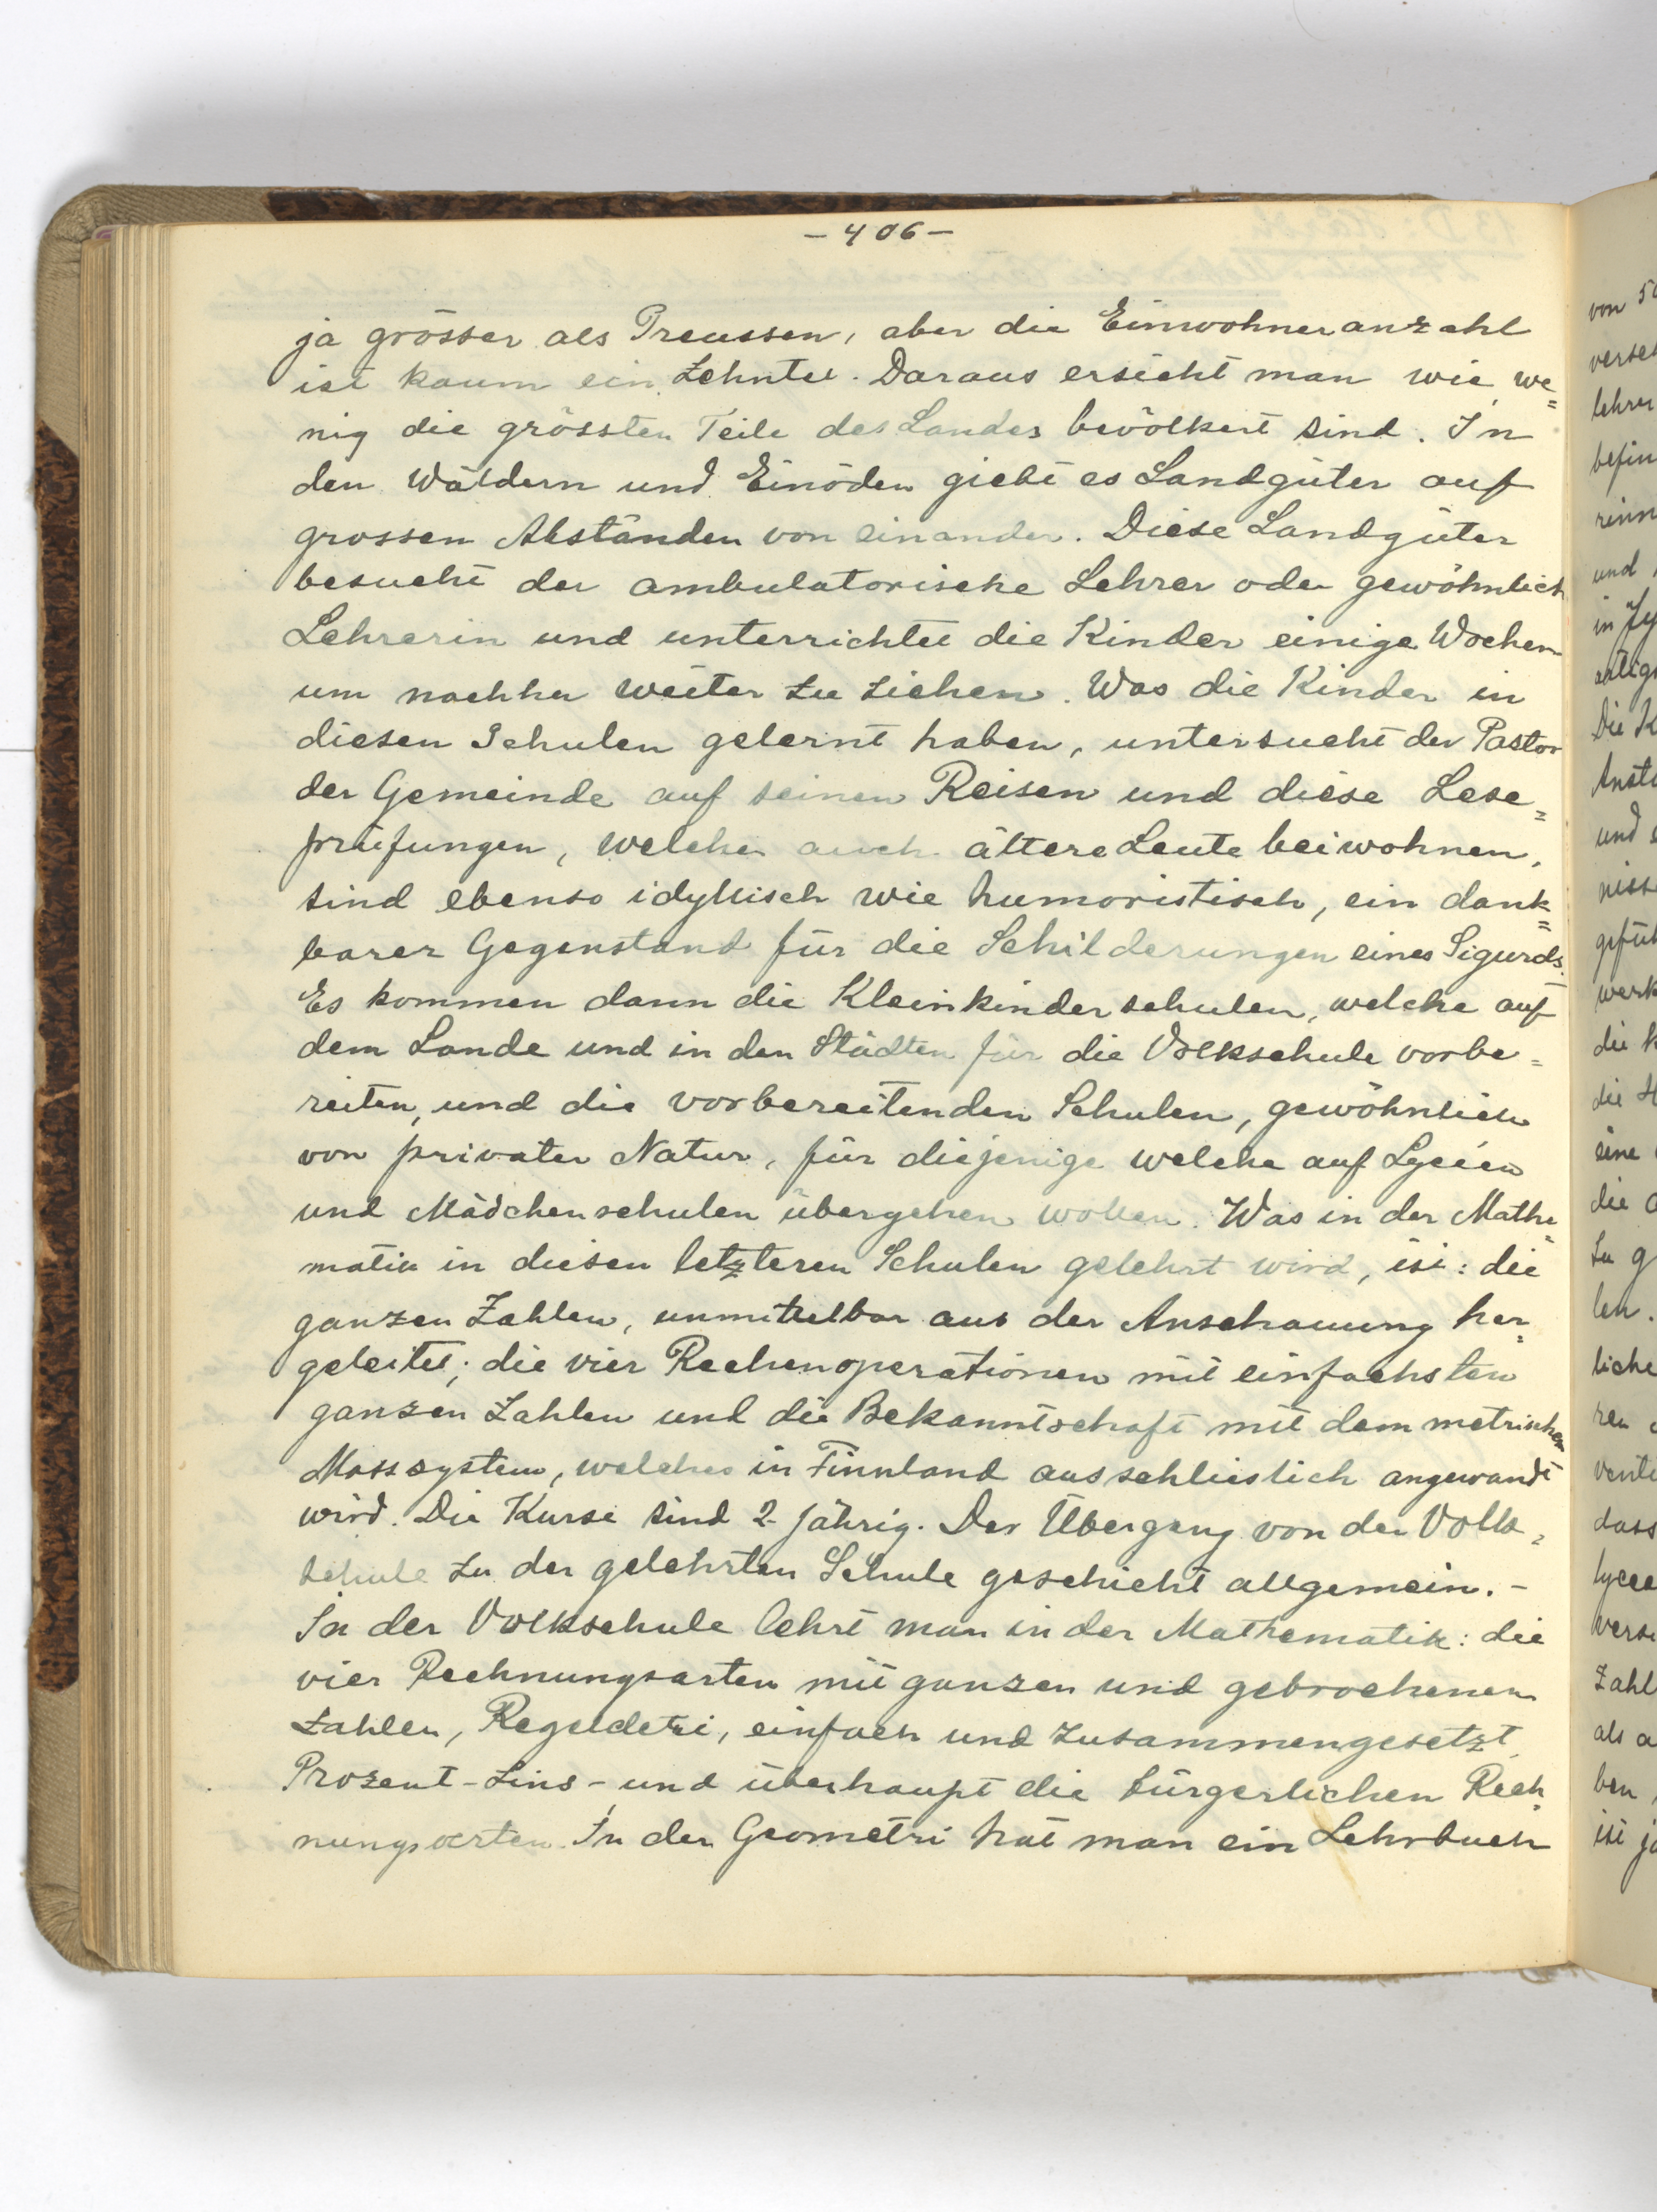 - 406 -
ja grösser als Preussen, aber die Einwohneranzahl
ist kaum ein Zehntel. Daraus ersieht man wie we=
nig die grössten Teile des Landes bevölkert sind. In
den Wäldern und Einöden giebt es Landgüter auf
grossen Abständen von einander. Diese Landgüter
besucht der ambulatorische Lehrer oder gewöhnlich
Lehrerin und unterrichtet die Kinder einige Wochen
um nachher weiter zu ziehen. Was die Kinder in
diesen Schulen gelernt haben, untersucht der Pastor
der Gemeinde auf seinen Reisen und diese Lese=
prüfungen, welchen auch ältere Leute beiwohnen,
sind ebenso idyllisch wie humoristisch, ein dank=
barer Gegenstand für die Schilderungen eines Sigurds.
Es kommen dann die Kleinkinderschulen, welche auf
dem Lande und in den Städten für die Volkschule vorbe=
reiten, und die vorbereitenden Schulen, gewöhnlich
von privater Natur, für diejenige welche auf Lycéen
und Mädchenschulen übergehen wollen. Was in der Mathe=
matik in diesen letzteren Schulen gelehrt wird, ist: die
ganzen Zahlen, unmittelbar aus der Anschauung her=
geleitet; die vier Rechenoperationen mit einfachsten
ganzen Zahlen und die Bekanntschaft mit dem metrischen
Masssystem, welches in Finnland ausschlieslich angewandt
wird. Die Kurse sind 2-jährig. Der Übergang von der Volk=
schule zu der gelehrten Schule geschieht allgemein. -
In der Volkschule lehrt man in der Mathematik: die
vier Rechnungsarten mit ganzen und gebrochenen
Zahlen, Regeldetri, einfach und zusammengesetzt,
Prozent-Zins- und überhaupt die bürgerlichen Rech=
nungsarten. In der Geometri hat man ein Lehrbuch